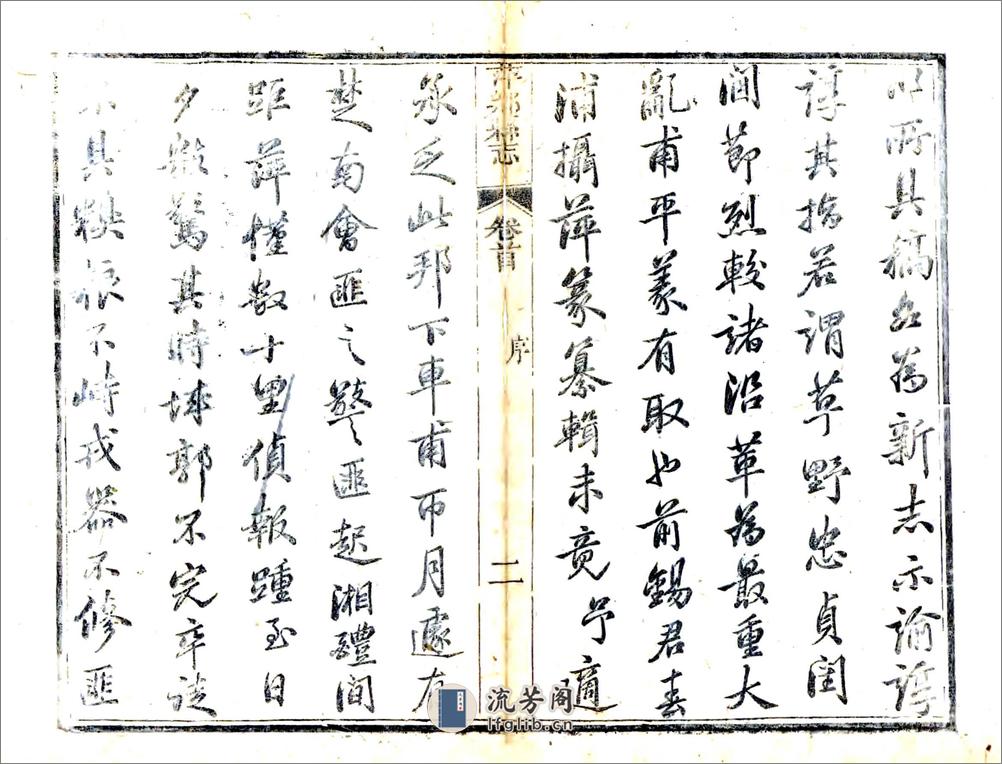 以所具稿名為新志示諭諄
諄其指若謂草野忠貞閨
閫節烈較諸沿革為最重大
亂甫平義有取也前錫君春
浦攝萍篆纂輯未竟予適
萍鄉縣志 卷首 序 二
承乏此邦下車甫帀月遽有
楚南會匪之警匪起湘醴間
距萍僅數十里偵報踵至日
夕數驚其時城郭不完卒徒
不具糗粻不峙戎器不修匪
流芳阁
lfglib.cn